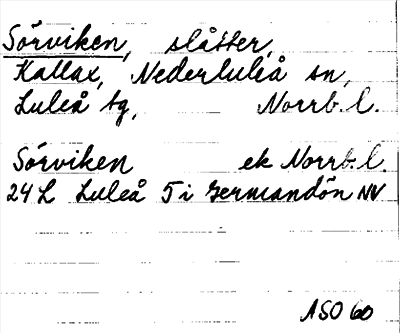 Sörviken, slåtter,
Kallax, Nederluleå sn,
Luleå tg, Norrb. l.
Sörviken ek Norrb. l.
24 L Luleå 5 i Germandön NV
ASO 60